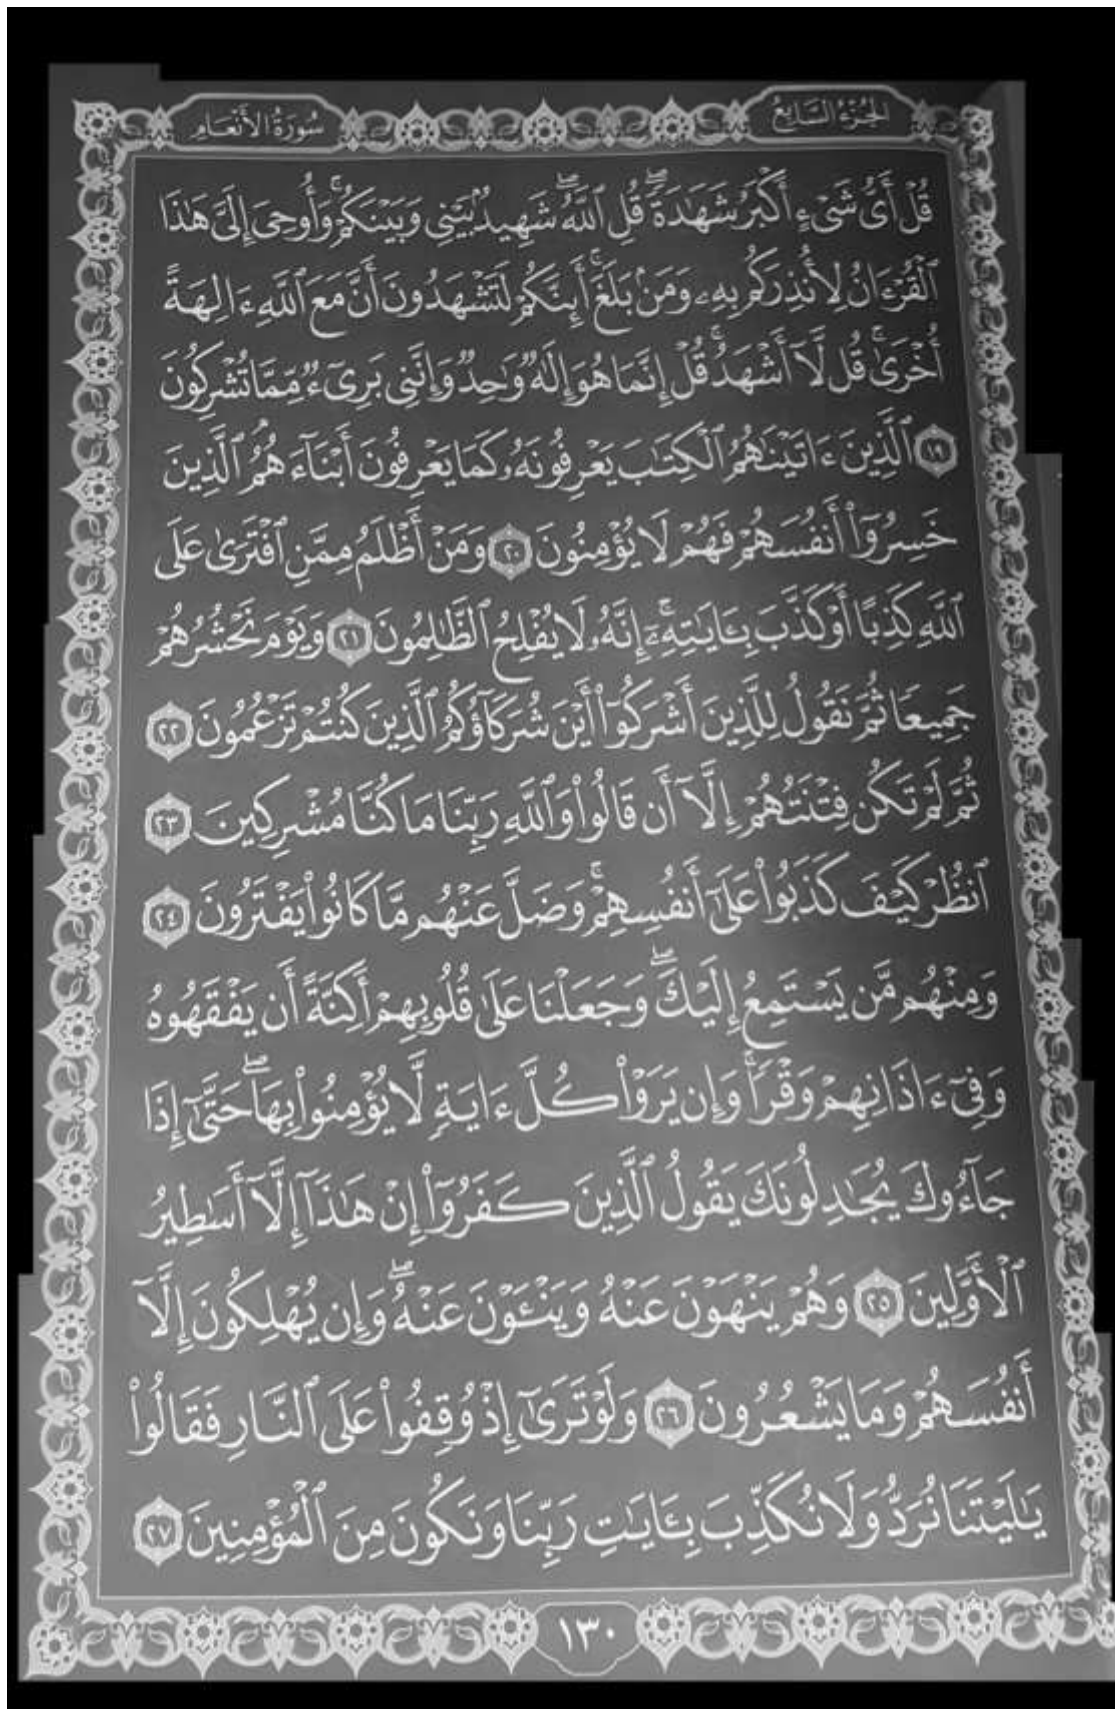 الجزء السابع
سورة الأنعام
قُلْ أَىُّ شَىْءٍ أَكْبَرُ شَهَٰدَةً ۖ قُلِ ٱللَّهُ ۖ شَهِيدٌۢ بَيْنِى وَبَيْنَكُمْ ۚ وَأُوحِىَ إِلَىَّ هَٰذَا
ٱلْقُرْءَانُ لِأُنذِرَكُم بِهِۦ وَمَنۢ بَلَغَ ۚ أَئِنَّكُمْ لَتَشْهَدُونَ أَنَّ مَعَ ٱللَّهِ ءَالِهَةً
أُخْرَىٰ ۚ قُل لَّآ أَشْهَدُ ۚ قُلْ إِنَّمَا هُوَ إِلَٰهٌ وَٰحِدٌ وَإِنَّنِى بَرِىٓءٌ مِّمَّا تُشْرِكُونَ
١٩ ٱلَّذِينَ ءَاتَيْنَٰهُمُ ٱلْكِتَٰبَ يَعْرِفُونَهُۥ كَمَا يَعْرِفُونَ أَبْنَآءَهُمُ ۘ ٱلَّذِينَ
خَسِرُوٓا۟ أَنفُسَهُمْ فَهُمْ لَا يُؤْمِنُونَ ٢٠ وَمَنْ أَظْلَمُ مِمَّنِ ٱفْتَرَىٰ عَلَى
ٱللَّهِ كَذِبًا أَوْ كَذَّبَ بِـَٔايَٰتِهِۦٓ ۗ إِنَّهُۥ لَا يُفْلِحُ ٱلظَّٰلِمُونَ ٢١ وَيَوْمَ نَحْشُرُهُمْ
جَمِيعًا ثُمَّ نَقُولُ لِلَّذِينَ أَشْرَكُوٓا۟ أَيْنَ شُرَكَآؤُكُمُ ٱلَّذِينَ كُنتُمْ تَزْعُمُونَ ٢٢
ثُمَّ لَمْ تَكُن فِتْنَتُهُمْ إِلَّآ أَن قَالُوا۟ وَٱللَّهِ رَبِّنَا مَا كُنَّا مُشْرِكِينَ ٢٣
ٱنظُرْ كَيْفَ كَذَبُوا۟ عَلَىٰٓ أَنفُسِهِمْ ۚ وَضَلَّ عَنْهُم مَّا كَانُوا۟ يَفْتَرُونَ ٢٤
وَمِنْهُم مَّن يَسْتَمِعُ إِلَيْكَ ۖ وَجَعَلْنَا عَلَىٰ قُلُوبِهِمْ أَكِنَّةً أَن يَفْقَهُوهُ
وَفِىٓ ءَاذَانِهِمْ وَقْرًا ۚ وَإِن يَرَوْا۟ كُلَّ ءَايَةٍ لَّا يُؤْمِنُوا۟ بِهَا ۖ حَتَّىٰٓ إِذَا
جَآءُوكَ يُجَٰدِلُونَكَ يَقُولُ ٱلَّذِينَ كَفَرُوٓا۟ إِنْ هَٰذَآ إِلَّآ أَسَٰطِيرُ
ٱلْأَوَّلِينَ ٢٥ وَهُمْ يَنْهَوْنَ عَنْهُ وَيَنْـَٔوْنَ عَنْهُ ۖ وَإِن يُهْلِكُونَ إِلَّآ
أَنفُسَهُمْ وَمَا يَشْعُرُونَ ٢٦ وَلَوْ تَرَىٰٓ إِذْ وُقِفُوا۟ عَلَى ٱلنَّارِ فَقَالُوا۟
يَٰلَيْتَنَا نُرَدُّ وَلَا نُكَذِّبَ بِـَٔايَٰتِ رَبِّنَا وَنَكُونَ مِنَ ٱلْمُؤْمِنِينَ ٢٧
١٣٠